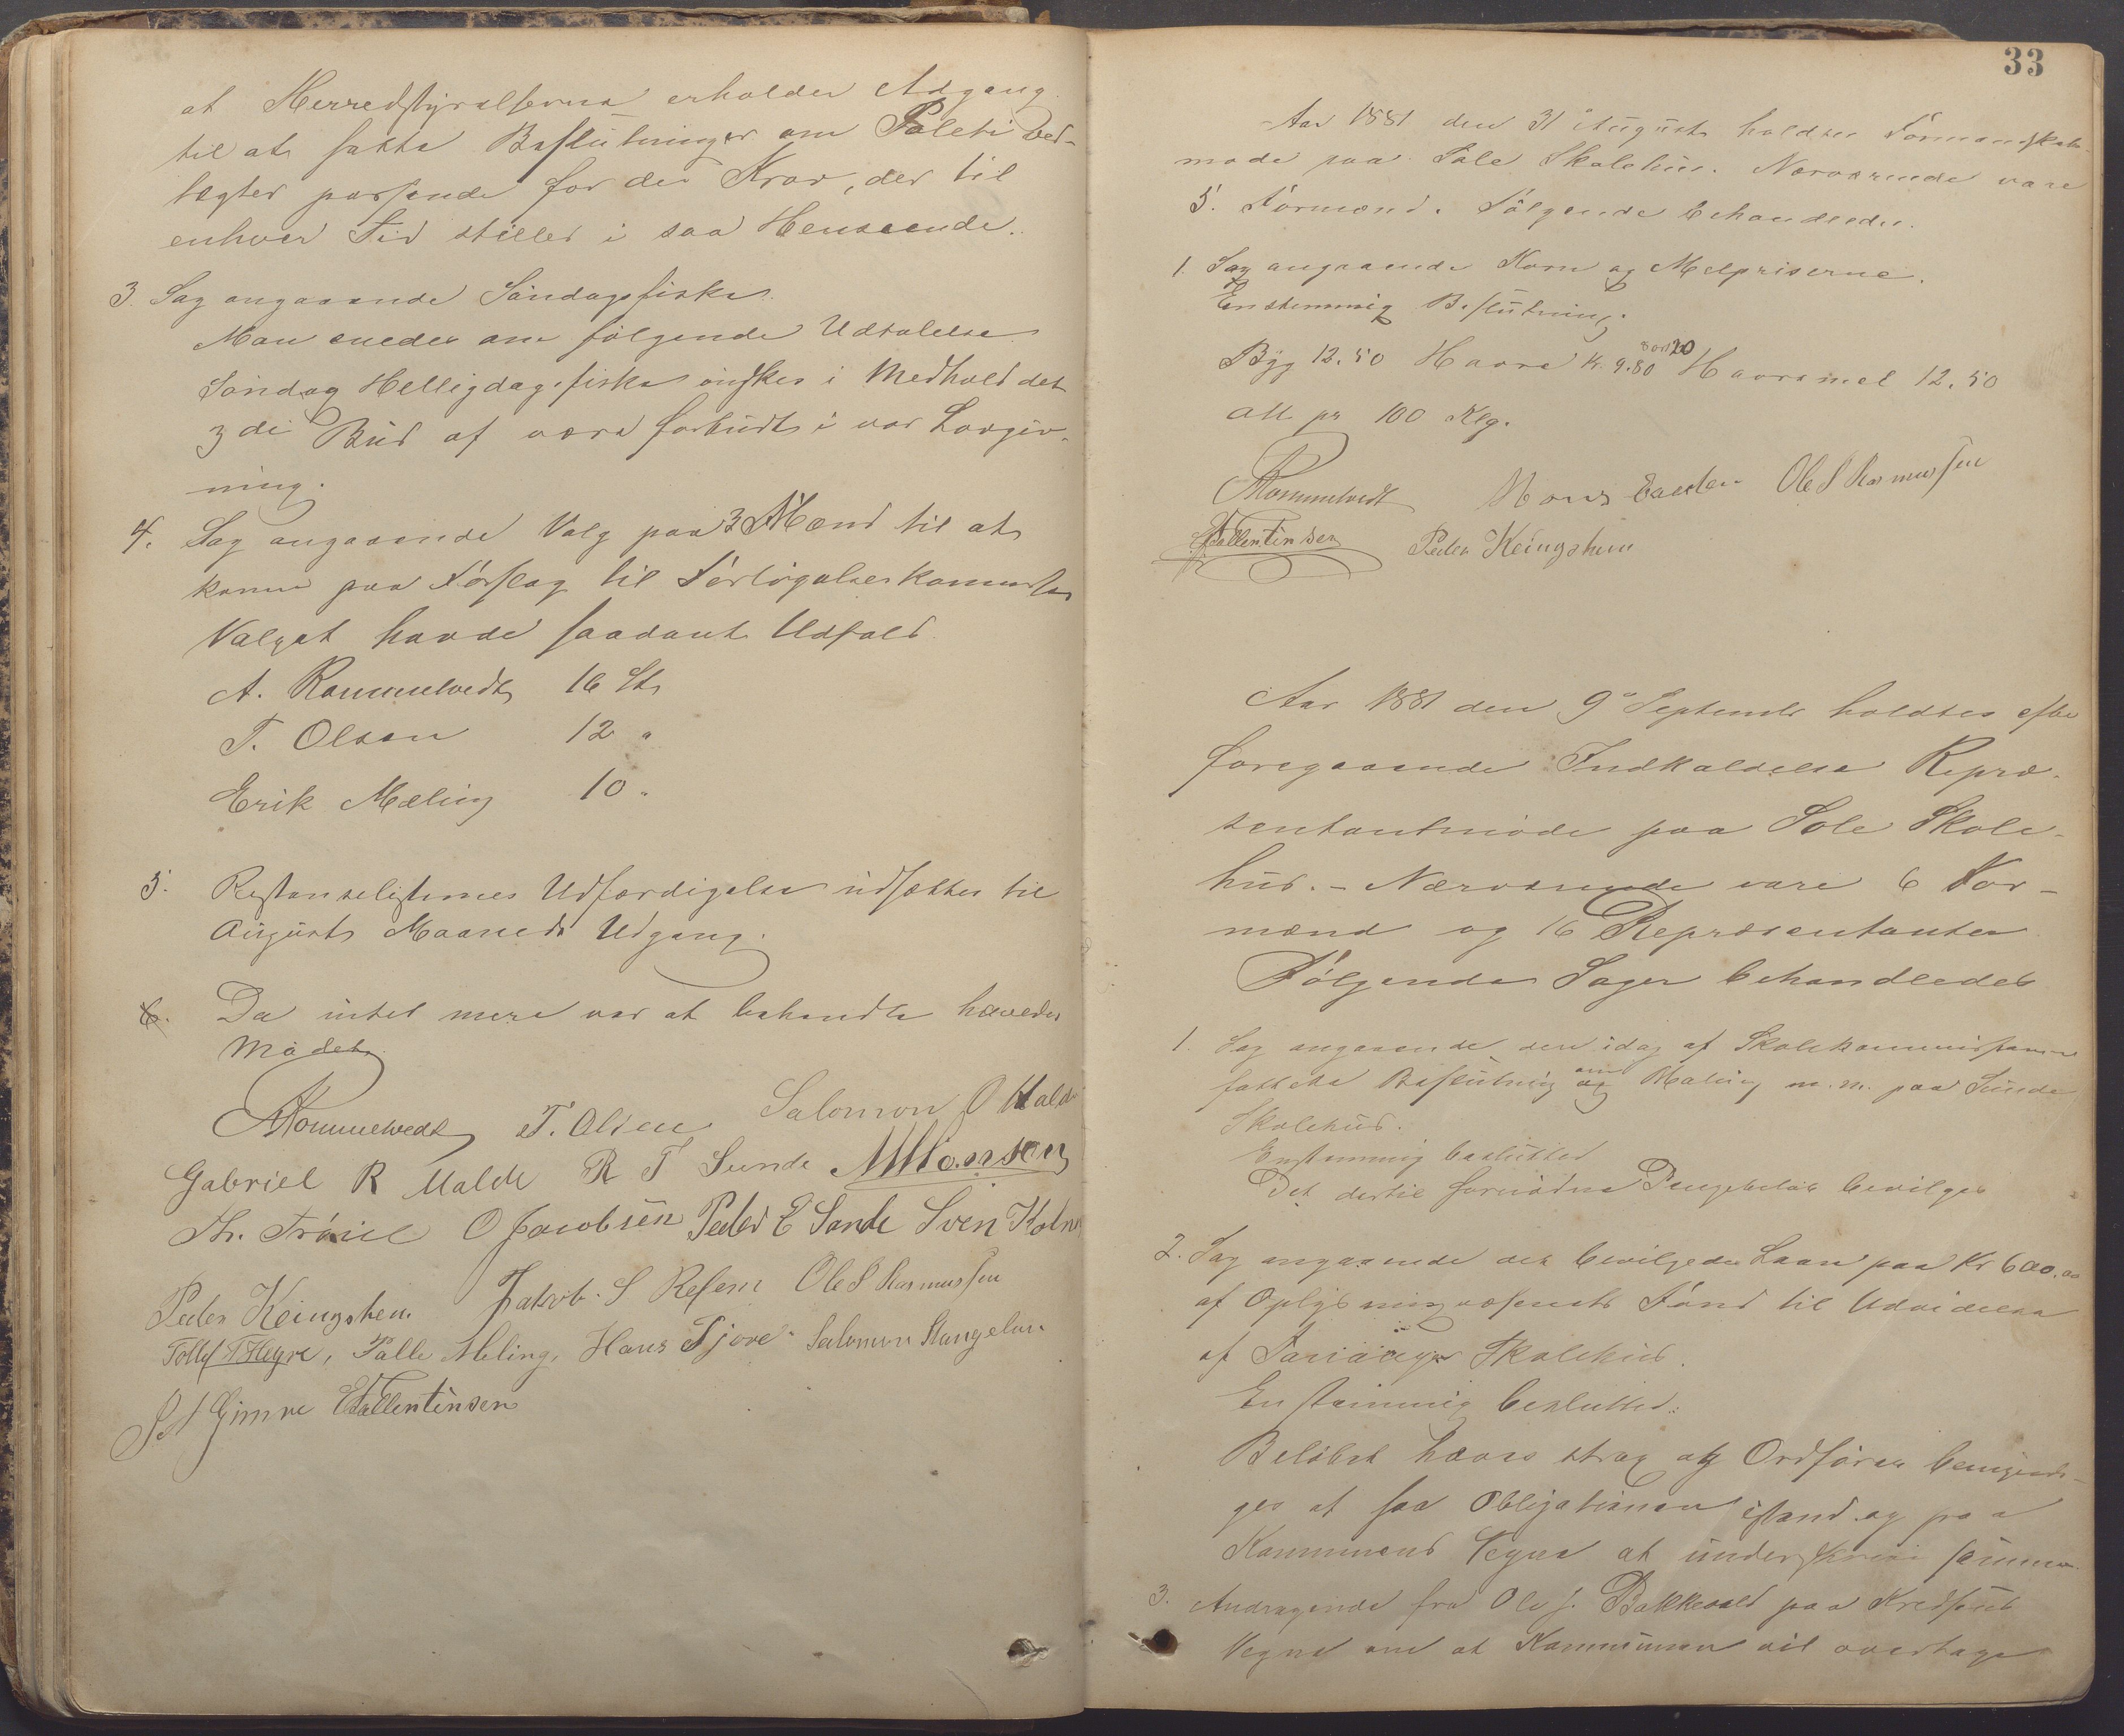 at Herredstyrelserna erholder Adgang
til at fatte Beslutninger om Politi Ved-
tægter passende for de Krav, der til
enhver Tid stilles i saa Henseende.
3. Sag angaaende Søndagsfiske.
Man enedes om følgende Udtalelse
Søndag Helligdagsfiske ønskes i Medhold det
3die Bud af være forbudt i vor Lovgiv-
ning.
4. Sag angaaende Valg paa 3 Mænd til at
komme paa Forslag til Forligelseskommissær
Valget havde saadant Udfald
A. Rommelvedt 16 St
T. Olsen 12 "
Erik Mæling 10 "
5. Restanselisternes Udfærdigelse udsættes til
August Maaneds Udgang.
6. Da intet mere var at behandle hævedes
Mødet.
A Rommelvedt T. Olsen Salomon O Malde
Gabriel R Malde R T Sunde
O Jacobsen Peder E Sande Sven Kolnes
Peder Keingshem Jakob S Refem Ole S Rasmussen
Tollef T Hegre, Palle Meling, Hans Tjore Salomon Stangeland
Gimre E Vallentinsen
33
Aar 1881 den 31 August holdtes Formandskabs-
møde paa Sole Skolehus. Nærværende vare
5. Formænd. Følgende behandledes.
1. Sag angaaende Korn og Melpriserne.
Enstemmig Beslutning.
Byg 12.50 Havre Kr. 9.80 Havremel 12.50
alt pr 100 Klg.
A Rommelvedt Hans Ole S Rasmussen
E Vallentinsen Peder Keingshem
Aar 1881 den 9 Septembr holdtes efter
foregaaende Indkaldelse Repræ-
sentantmøde paa Sole Skole-
hus. - Nærværende vare 6 For-
mænd og 16 Repræsentanter
Følgende Sager behandledes
1. Sag angaaende den idag af Skolekommissionen
fattede Beslutning om Maling m.m. paa Sunde
Skolehus.
Enstemmig besluttet
Det dertil fornødne Pengebeløb bevilges
2. Sag angaaende det bevilgede Laan paa Kr 600.00
af Oplysningsvæsenets Fond til Udvidelse
af Skolehus.
Enstemmig besluttet:
Beløbet hæves strax og Ordføren bemyndi-
ges at faa Obligationen istand og paa
Kommunens Vegne at underskrive samme.
3. Andragende fra Ole J. Bakkevold paa Kredsens
Vegne om at Kommunen vil overtage